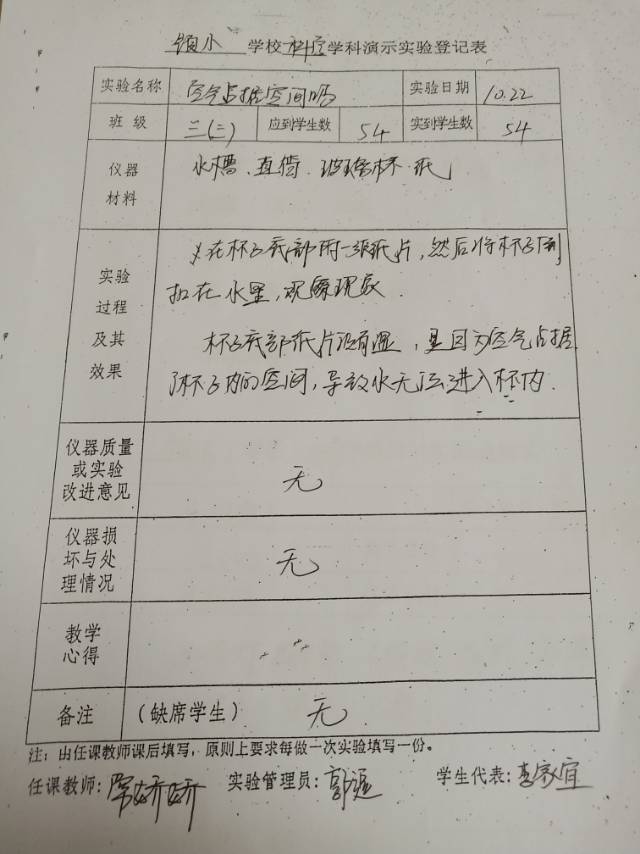 镇小 学校科学学科演示实验登记表
实验名称 空气占据空间吗 实验日期 10.22
班级 三(二) 应到学生数 54 实到学生数 54
仪器 水槽、直筒、玻璃杯、纸
材料
在杯子底部附一张纸片,然后将杯子倒
实验 扣在水里,观察现象.
过程
及其 杯子底部纸片没有湿,是因为空气占据
效果 了杯子内的空间,导致水无法进入杯内.
仪器质量
或实验 无
改进意见
仪器损
坏与处 无
理情况
教学
心得
备注 (缺席学生) 无
注:由任课教师课后填写,原则上要求每做一次实验填写一份。
任课教师: 娇娇 实验管理员: 郭 学生代表: 李家宜